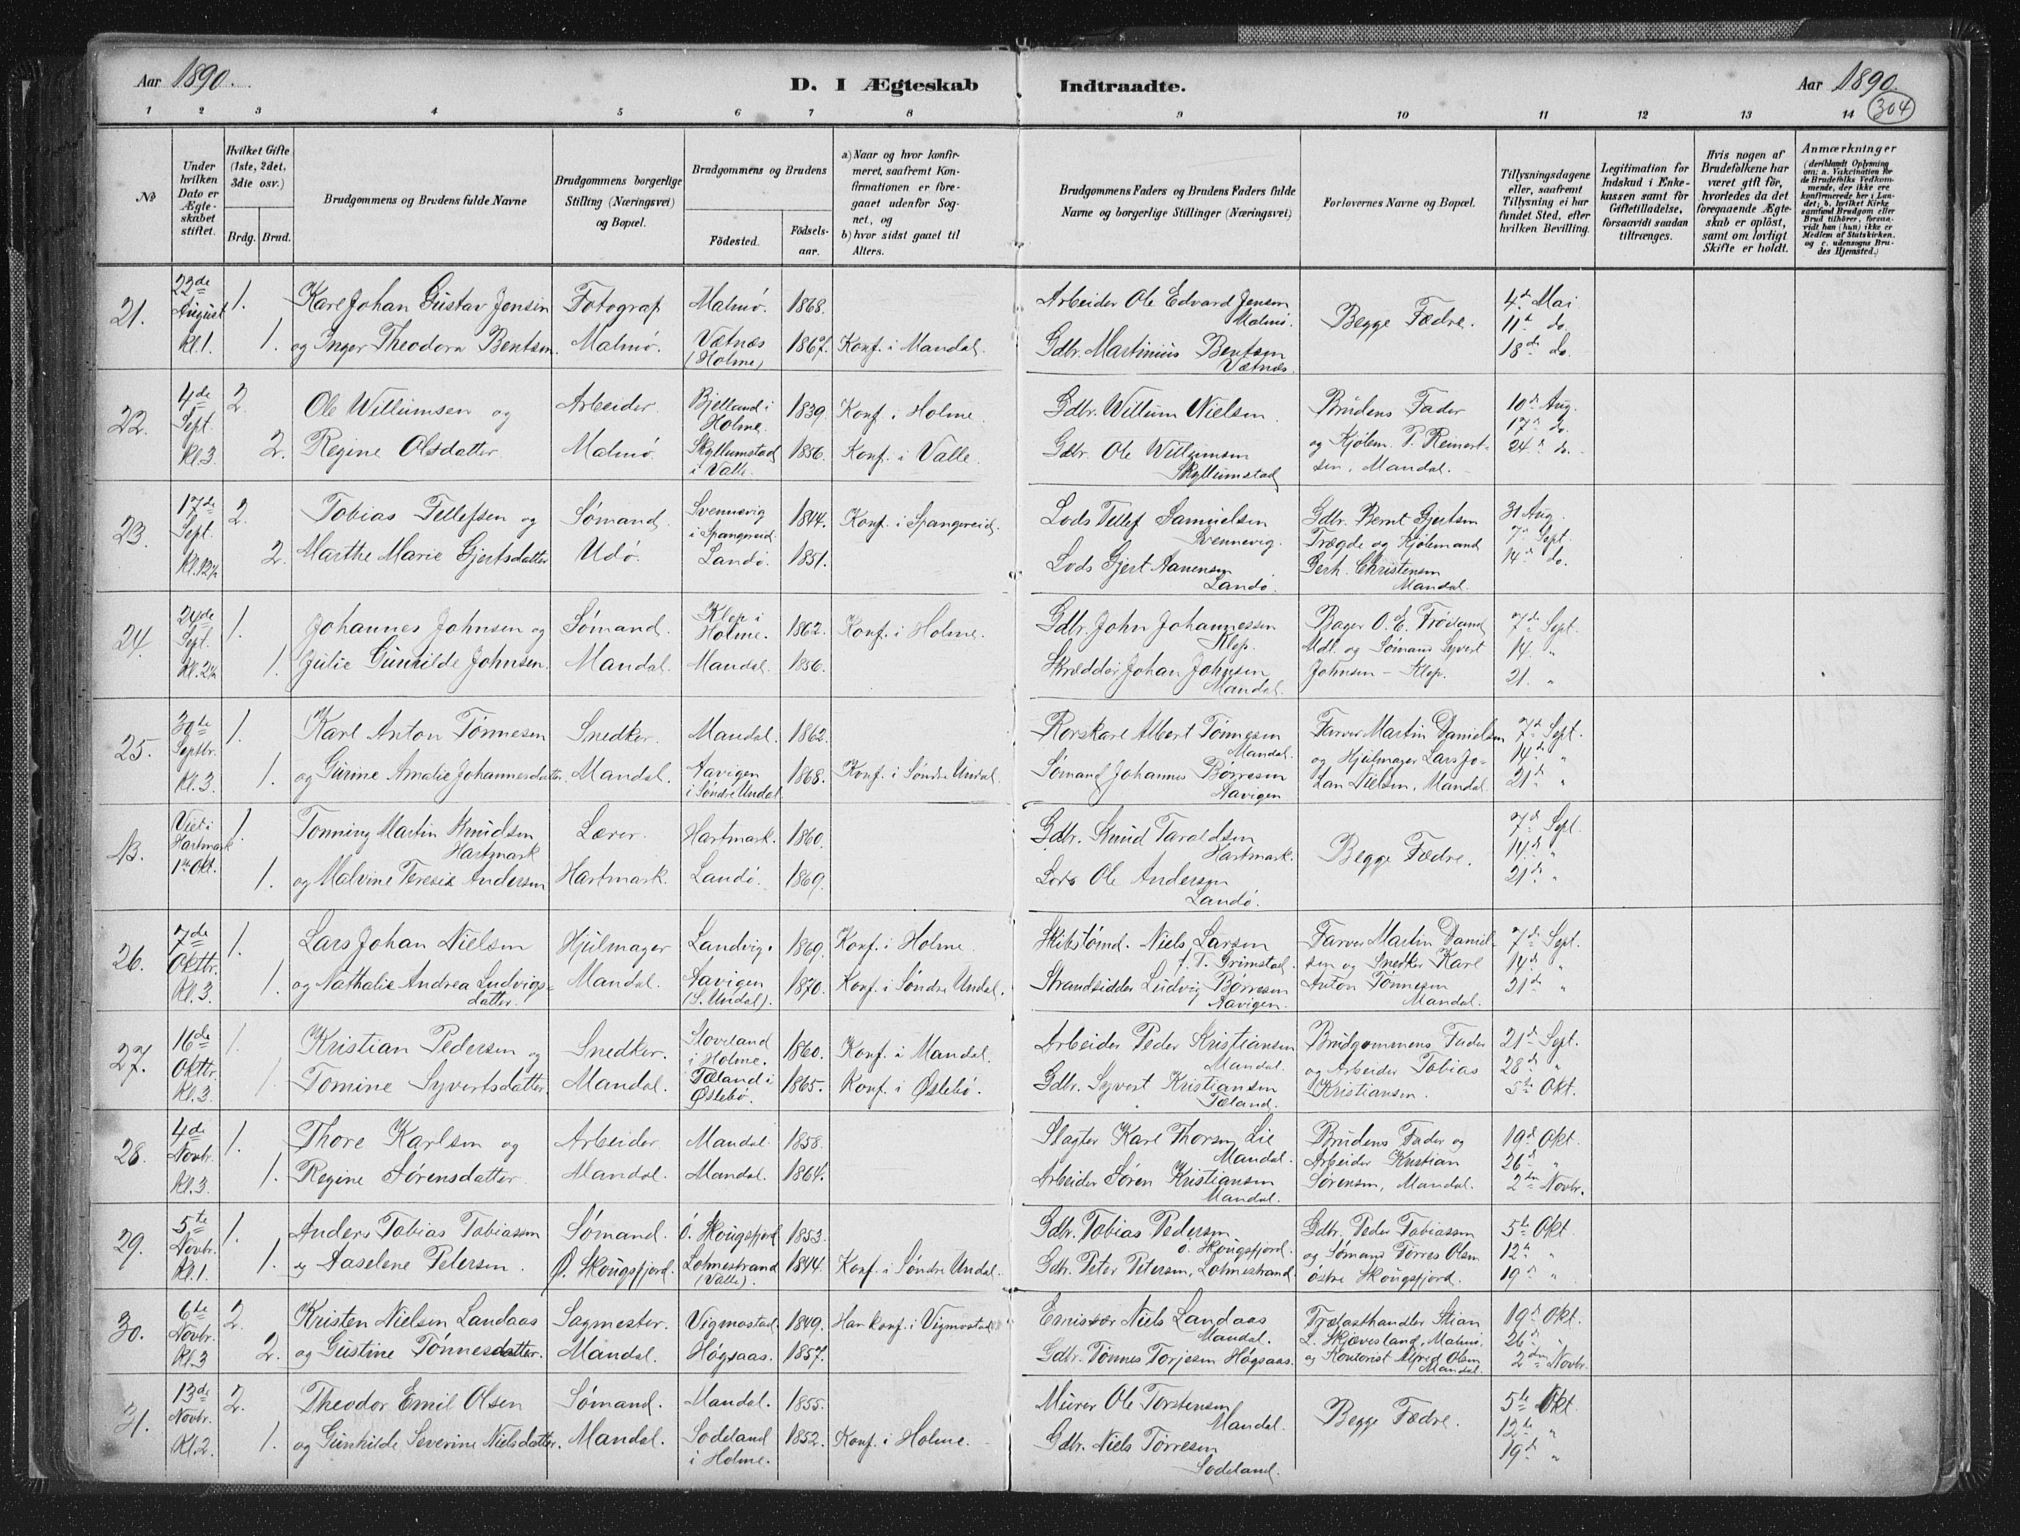 Aar 1890. D. I Ægteskab Indtraadte. Aar 1890.
304
1 2 3 4 5 6 7 8 9 10 11 12 13 14
No
Under hvilken Dato er Ægteskabet stiftet.
Hvilket Gifte (1ste, 2det, 3die osv.)
Brdg. Brud.
Brudgommens og Brudens fulde Navne
Brudgommens borgerlige Stilling (Næringsvei) og Bopæl.
Brudgommens og Brudens
Födested.
Födselsaar.
a) Naar og hvor konfirmeret, saafremt Konfirmationen er foregaaet udenfor Sognet, og
b) hvor sidst gaaet til Alters.
Brudgommens Faders og Brudens Faders fulde Navne og borgerlige Stillinger (Næringsvei)
Forlovernes Navne og Bopæl.
Tillysningsdagene eller, saafremt Tillysning ei har fundet Sted, efter hvilken Bevilling.
Legitimation for Indskud i Enkekassen samt for Giftetilladelse, forsaavidt saadan tiltrænges.
Hvis nogen af Brudefolkene har været gift för, hvorledes da det foregaaende Ægteskab er oplöst, samt om lovligt Skifte er holdt.
Anmærkninger (deriblandt Oplysning om: a. Vakcination for de Brudefolks Vedkommende, der ikke ere konfirmerede her i Landet; b. hvilket Kirkesamfund Brudgom eller Brud tilhörer, forsaavidt han (hun) ikke er Medlem af Statskirken, og c. udensogns Brudes Hjemsted.)
21. 22de August Kl. 1. 1. Karl Johan Gustav Jensen Fotograf Malmø. 1868. Arbeider Ole Edvard Jensen Malmø. Begge Fædre. 4de Mai
1. og Inger Theodora Bentsen Malmø. Vætnæs (Holme) 1867. Konf. i Mandal. Gdbr. Martinius Bentsen Vætnæs. 11te do. 18de do.
22. 4de Sept. Kl. 3. 2. Ole Willumsen og Arbeider Bjelland i Holme. 1839. Konf. i Holme. Gdbr. Willum Nielsen. Brudens Fader 10de Aug.
2. Regine Olsdatter Malmø. Skyllumstad i Valle. 1856. Konf. i Valle. Gdbr. Ole Willumsen Skyllumstad og Kjølem. P. Reinertsen, Mandal. 17de do. 24de do.
23. 17de Sept. Kl. 12½ 2. Tobias Tellefsen og Sømand. Svennevig i Spangereid. 1844. Konf. i Spangereid. Lods Tellef Samuelsen Svennevig. Gdbr. Bernt Gjertsen 31 Aug.
2. Marthe Marie Gjertsdatter Udø. Landø. 1851. Lods Gjert Aanensen Landø. Trægde og Kjølemand Gerh. Christensen Mandal. 7de Sept. 14de do.
24. 24de Sept. Kl. 2½ 1. Johannes Johnsen og Sømand. Klep i Holme. 1862. Konf. i Holme. Gdbr. John Johannessen Klep. Bager O. E. Frøiland 7de Sept.
1. Julie Gunhilde Johnsen. Mandal. Mandal. 1856. Skrædder Johan Johnsen Mandal. Mdl. og Sømand Syvert Johnsen - Klep. 14. " 21. "
25. 30te Septbr. Kl. 3. 1. Karl Anton Tønnesen Snedker. Mandal. 1862. Korskarl Albert Tønnesen Mandal. Farver Martin Danielsen 7de Sept.
1. og Gurine Amalie Johannesdatter. Mandal. Aavigen i Søndre Undal. 1868. Konf. i Søndre Undal. Sømand Johannes Børresen Aavigen og Hjulmager Lars Johan Nielsen, Mandal. 14de " 21de "
B. Viet i Hartmark 1ste Okt. 1. Tønning Martin Knudsen Hartmark Lærer. Hartmark. 1860. Gdbr. Knud Taraldsen Hartmark. Begge Fædre. 7de Sept.
1. og Malvine Teresie Andersen Hartmark. Landø. 1869. Lods Ole Andersen Landø. 14de " 21de "
26. 7de Oktbr. Kl. 3. 1. Lars Johan Nielsen Hjulmager Landvig. 1869. Konf. i Holme. Skibstømd. Niels Larsen f. T. Grimstad. Farver Martin Danielsen og Snedker Karl 7de Sept.
1. og Nathalie Andrea Ludvigsdatter. Mandal. Aavigen (S. Undal). 1870. Konf. i Søndre Undal. Strandsidder Ludvig Børresen Aavigen. Anton Tønnesen Mandal. 14de " 21de "
27. 16de Oktbr. Kl. 3. 1. Kristian Pedersen og Snedker. Stoveland i Holme. 1860. Konf. i Mandal. Arbeider Peder Kristiansen Mandal. Brudgommens Fader 21de Sept.
1 Tomine Syvertsdatter Mandal. Tæland i Øslebø. 1865. Konf. i Øslebø. Gdbr. Syvert Kristiansen Tæland. og Arbeider Tobias Kristiansen. 28de " 5te Okt.
28. 4de Novbr. Kl. 3. 1. Thore Karlsen og Arbeider Mandal 1858. Slagter Karl Thorsen Lie Mandal. Brudens Fader og 19de Okt.
1. Regine Sørensdatter. Mandal. Mandal. 1864. Arbeider Søren Kristiansen Mandal. Arbeider Kristian Sørensen, Mandal. 26de " 2den Novbr.
29. 5te Novbr. Kl. 1. 1. Anders Tobias Tobiassen Sømand. Ö. Skougsfjord 1853. Gdbr. Tobias Pedersen ö. Skougsfjord. Gdbr. Peder Tobiassen 5te Okt.
1. og Aaselene Petersen. Ø. Skougsfjord. Lohnestrand (Valle). 1844. Konf. i Søndre Undal. Gdbr. Peter Petersen, Lohnestrand. og Sømand Tørres Olsen østre Skougsfjord. 12te " 19de "
30. 6te Novbr. Kl. 3 2. Kristen Nielsen Landaas Sagmester. Vigmostad 1849. Han konf. i Vigmostad Emissær Niels Landaas Mandal. Trælasthandler Stian 19de Okt.
2. og Gustine Tønnesdatter. Mandal. Høgsaas. 1857. Gdbr. Tønnes Torjesen Høgsaas. L. Skjævesland, Malmø, og Kontorist Alfred Olsen Mandal. 26de " 2den Novbr.
31. 13de Novbr. Kl. 2. 2. Theodor Emil Olsen Sømand. Mandal. 1855. Murer Ole Torstensen Mandal. Begge Fædre. 5te Okt.
1. og Gunhilde Severine Nielsdatter. Mandal. Sodeland i Holme. 1852. Konf. i Holme. Gdbr. Niels Tørresen Sodeland. 12te " 19de "